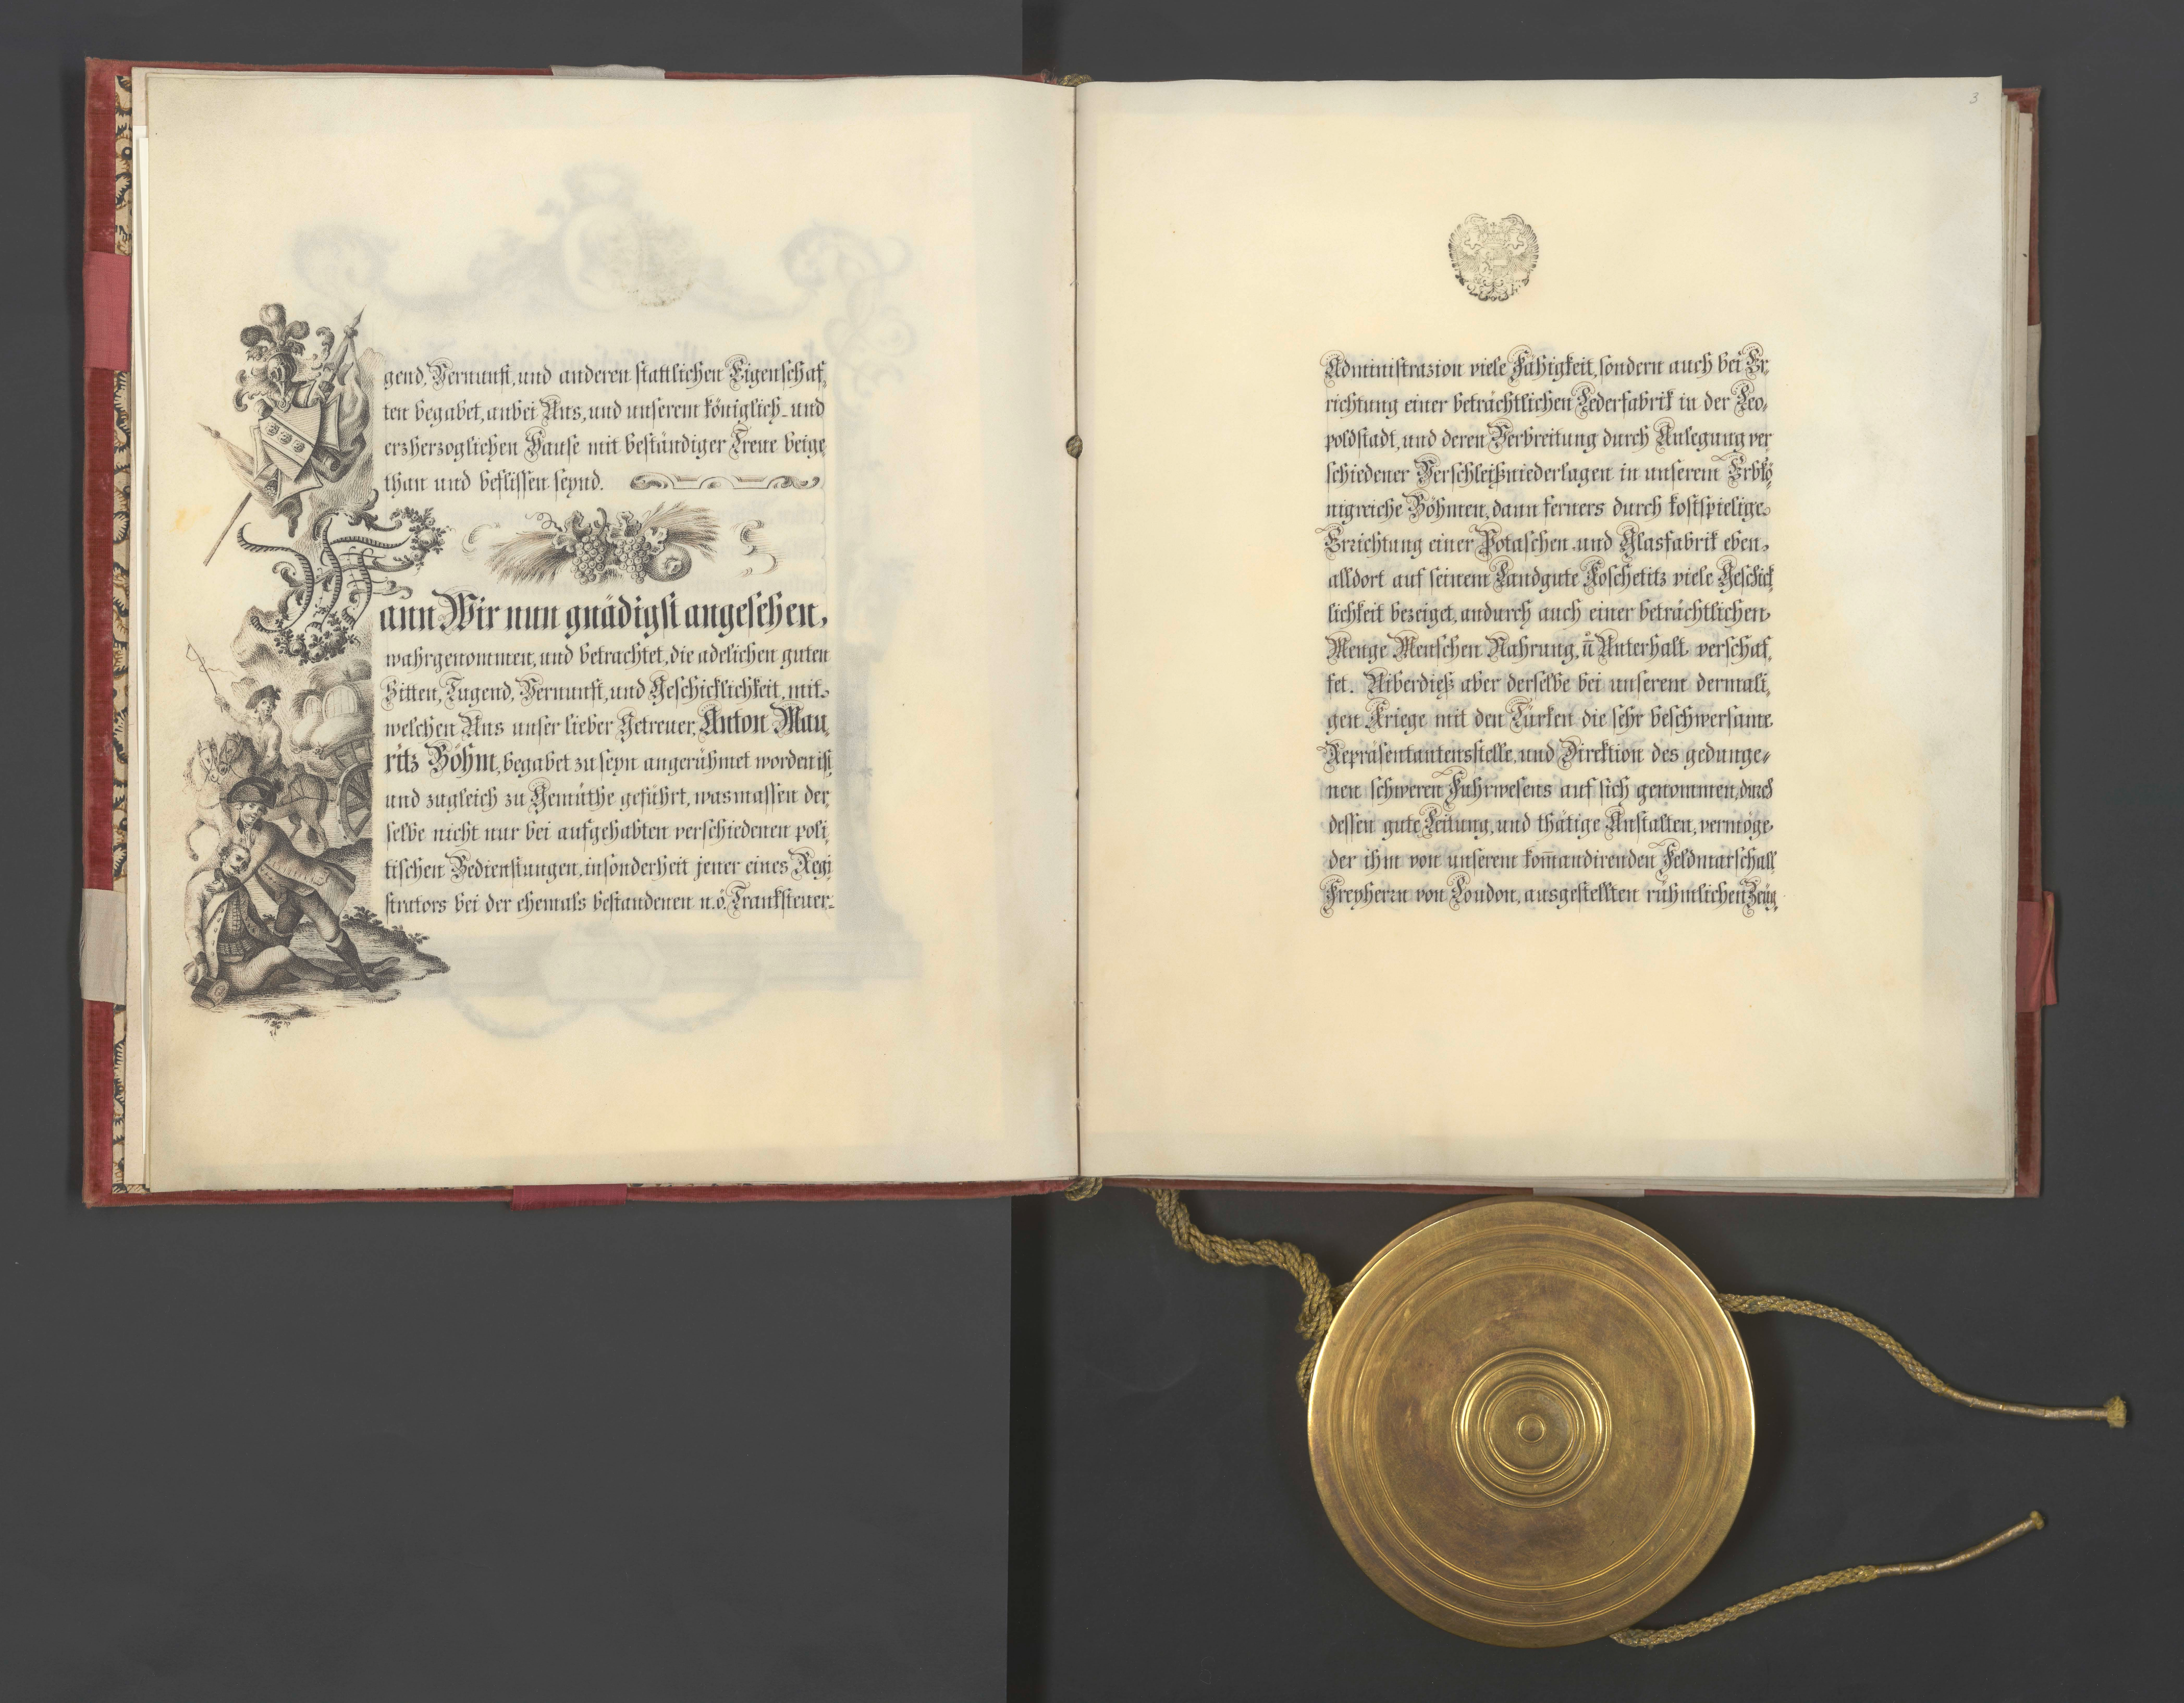 gend, Vernunft, und anderen stattlichen Eigenschaf,
ten begabet, anbei Uns, und unserem königlich- und
erzherzoglichen Hause mit beständiger Treue beige,
than und beflissen seynd.
Wann Wir nun gnädigst angesehen,
wahrgenommen, und betrachtet, die adelichen guten
Sitten, Tugend, Vernunft, und Geschicklichkeit, mit
welchen Uns unser lieber Getreuer, Anton Mau,
ritz Böhm, begabet zu seyn angerühmet worden ist,
und zugleich zu Gemüthe geführt, wasmassen der,
selbe nicht nur bei aufgehabten verschiedenen poli,
tischen Bedienstungen, insonderheit jener eines Regi
strators bei der ehemals bestandenen n. ö. Tranksteuer-
3
Administrazion viele Fähigkeit, sondern auch bei Er,
richtung einer beträchtlichen Lederfabrik in der Leo,
poldstadt, und deren Verbreitung durch Anlegung ver
schiedener Verschleißniederlagen in unserem Erbkö,
nigreiche Böhmen, dann ferners durch kostspielige
Errichtung einer Potaschen und Glasfabrik eben,
alldort auf seinem Landgute Koschetitz viele Geschick
lichkeit bezeiget, andurch auch einer beträchtlichen
Menge Menschen Nahrung, ū Unterhalt verschaf,
fet. Uiberdieß aber derselbe bei unserem dermali,
gen Kriege mit den Türken die sehr beschwersame
Repräsentantensstelle, und Direktion des gedunge,
nen schweren Fuhrwesens auf sich genommen, durch
dessen gute Leitung, und thätige Anstalten, vermöge
der ihm von unserem kom̄andirenden Feldmarschall
Freyherrn von Loudon, ausgestellten rühmlichen Zeug,